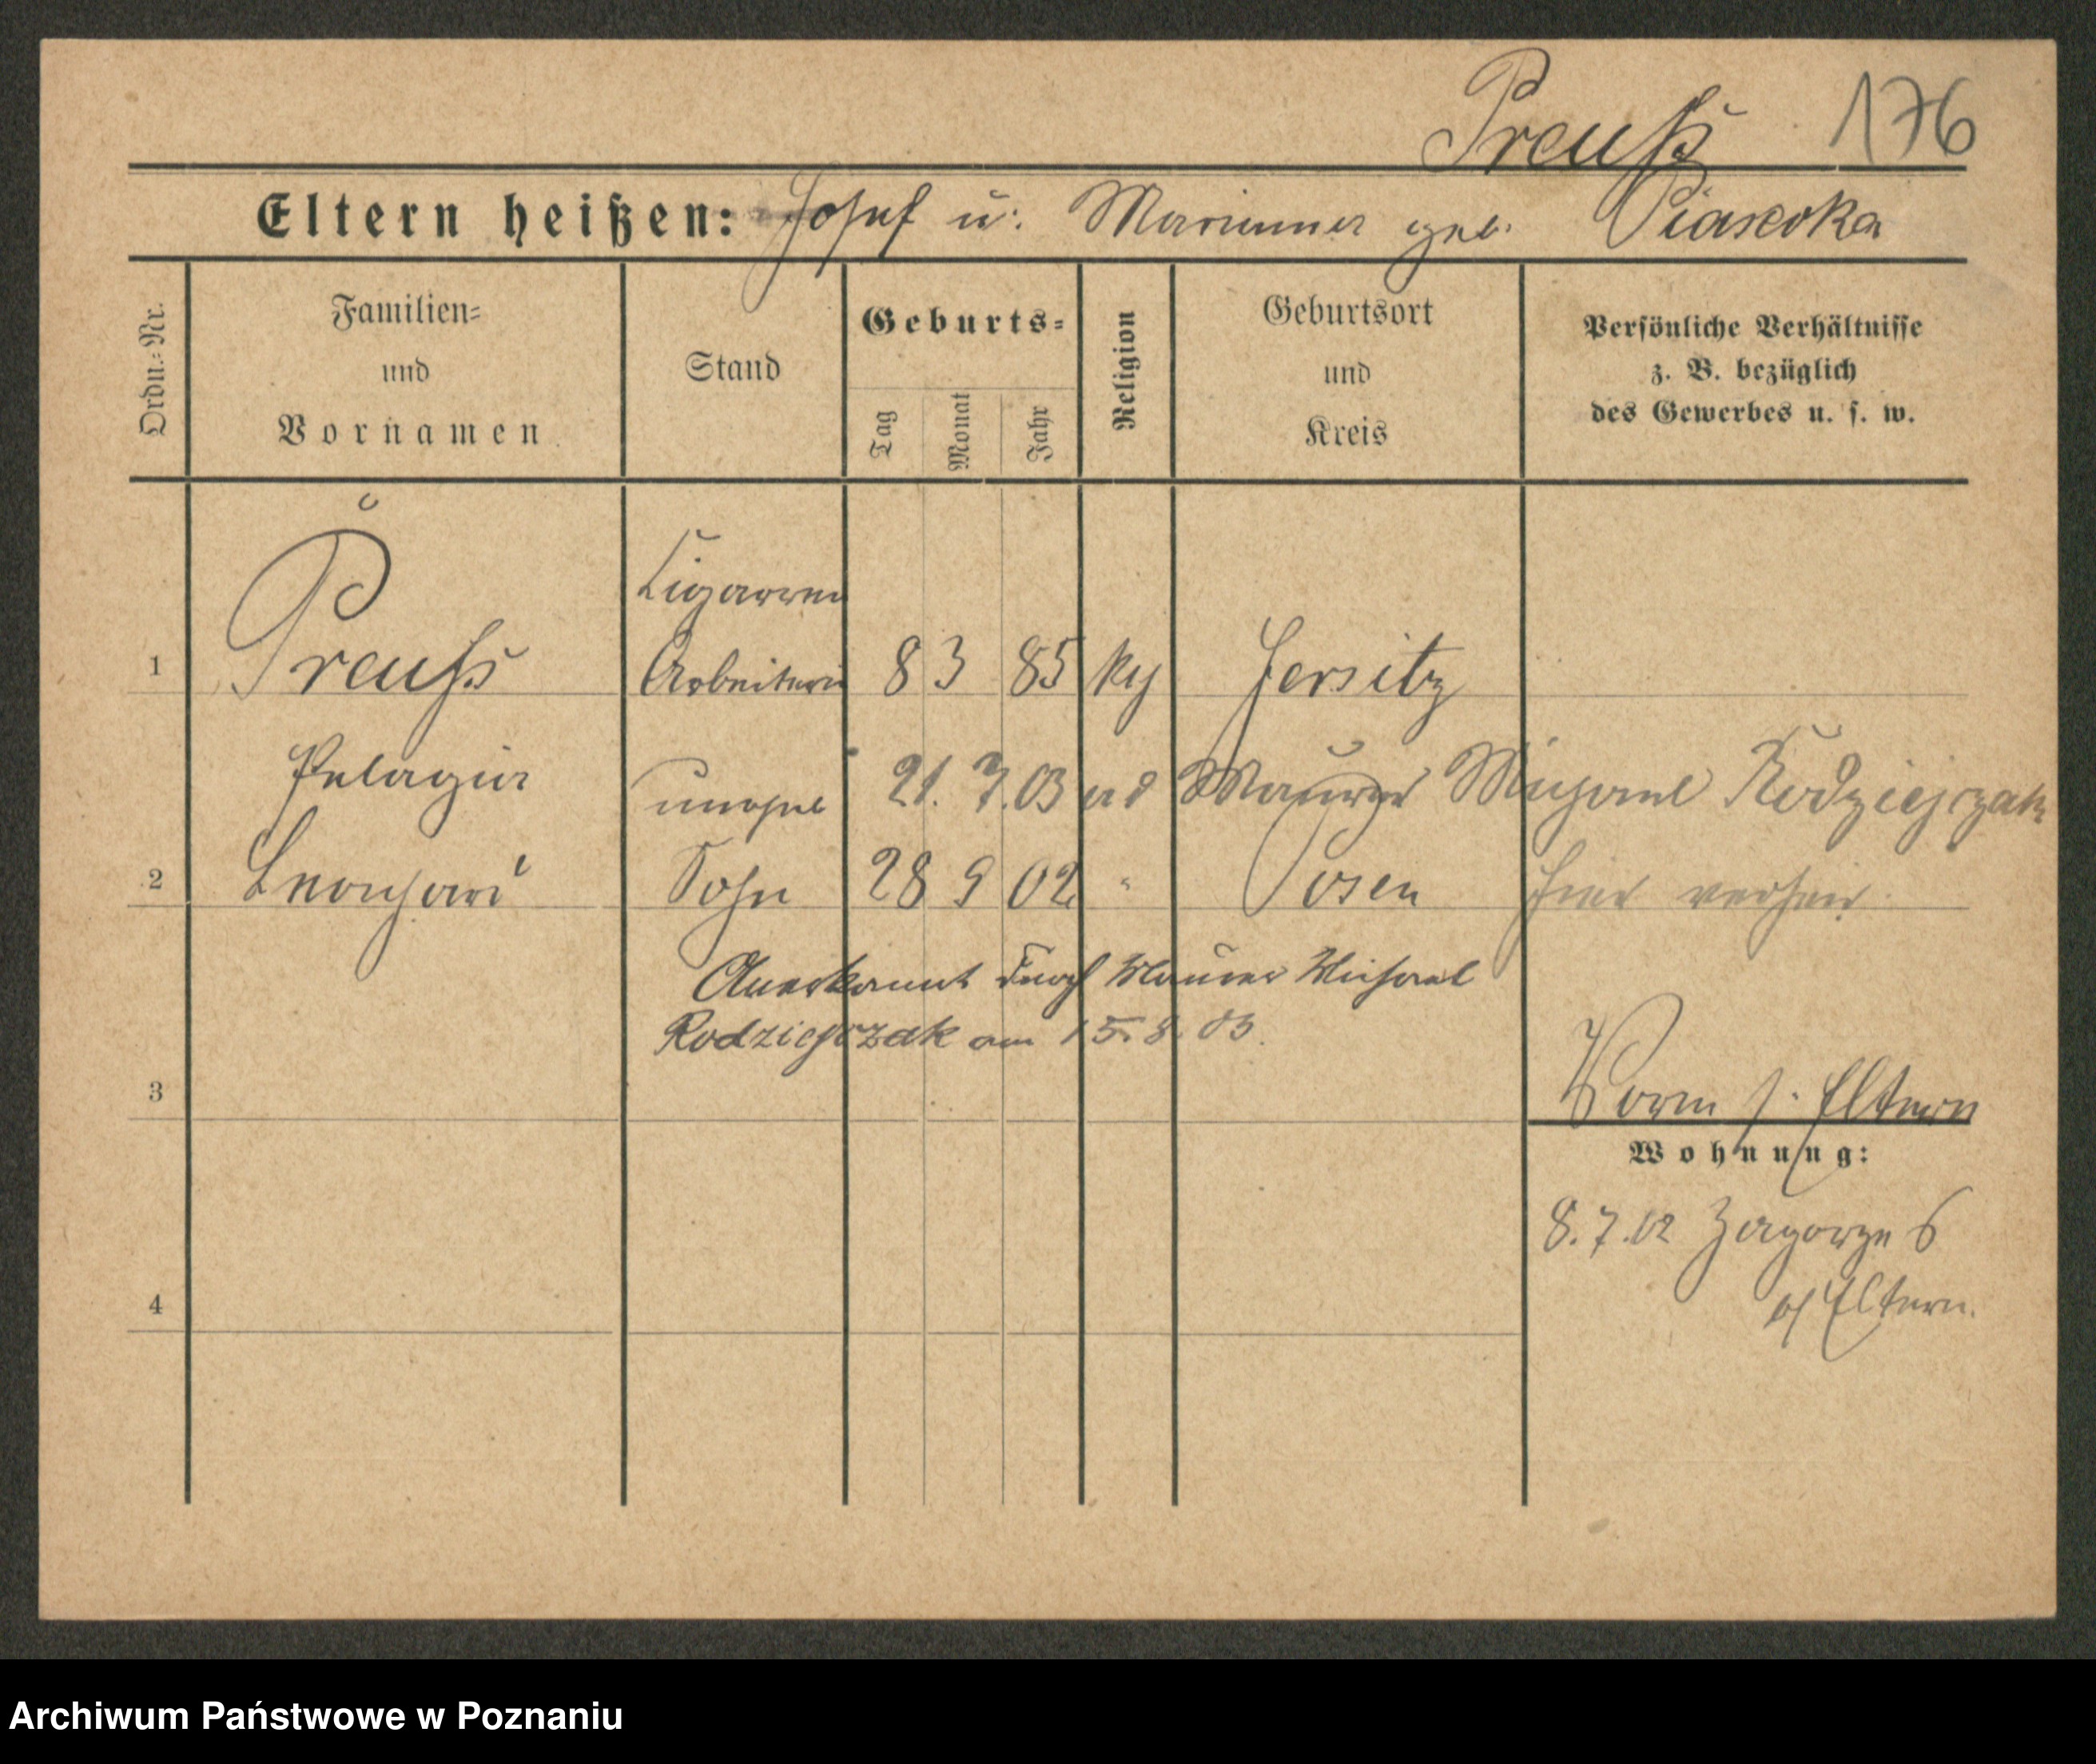 Preuß 176
Eltern heißen: Josef u. Marianna geb. Piasecka
Ordn.=Nr.
Familien=
und
Vornamen
Stand
Geburts=
Tag
Monat
Jahr
Religion
Geburtsort
und
Kreis
Persönliche Verhältnisse
z. B. bezüglich
des Gewerbes u. s. w.
Cigarren
1 Preuß Arbeiterin 8 3 85 Jersitz
Pelagia unehel 21. 7. 03 Maurer Michael Rodziejczak
2 Leonhard Sohn 28 9 02 " Posen hier verheir.
Anerkannt durch Maurer Michael
Rodziejczak am 15. 8. 03.
3 Eltern
Wohnung:
8. 7. 02 Zagorze 6
Eltern.
4
Archiwum Państwowe w Poznaniu